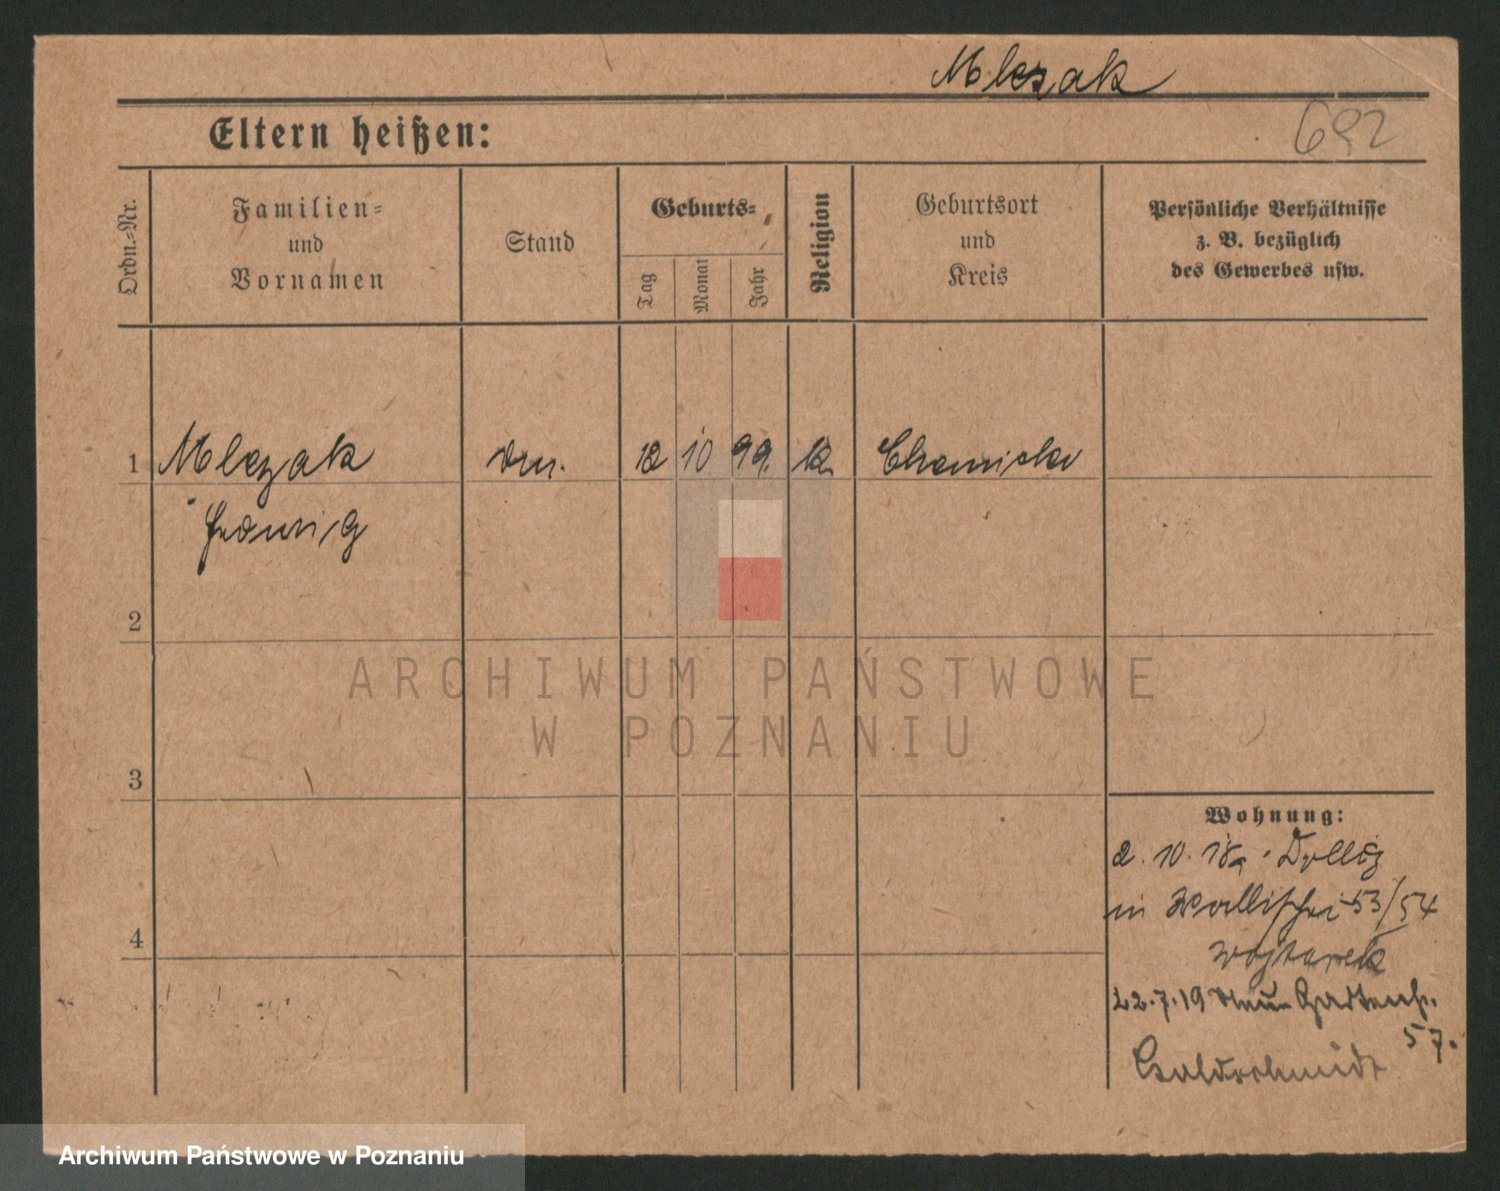 Mlezak
Eltern heißen:
692
Ordn.-Nr.
Familien-
und
Vornamen
Stand
Geburts-
Tag
Monat
Jahr
Religion
Geburtsort
und
Kreis
Persönliche Verhältnisse
z. B. bezüglich
des Gewerbes usw.
1
Mleczak
12
10
99.
k.
Hedwig
2
3
4
Wohnung:
2. 10. 18
in Wallischei 53/54
Wojtarek
22.7.19 Gartenstr.
57.
Goldschmidt
ARCHIWUM PAŃSTWOWE
W POZNANIU
Archiwum Państwowe w Poznaniu